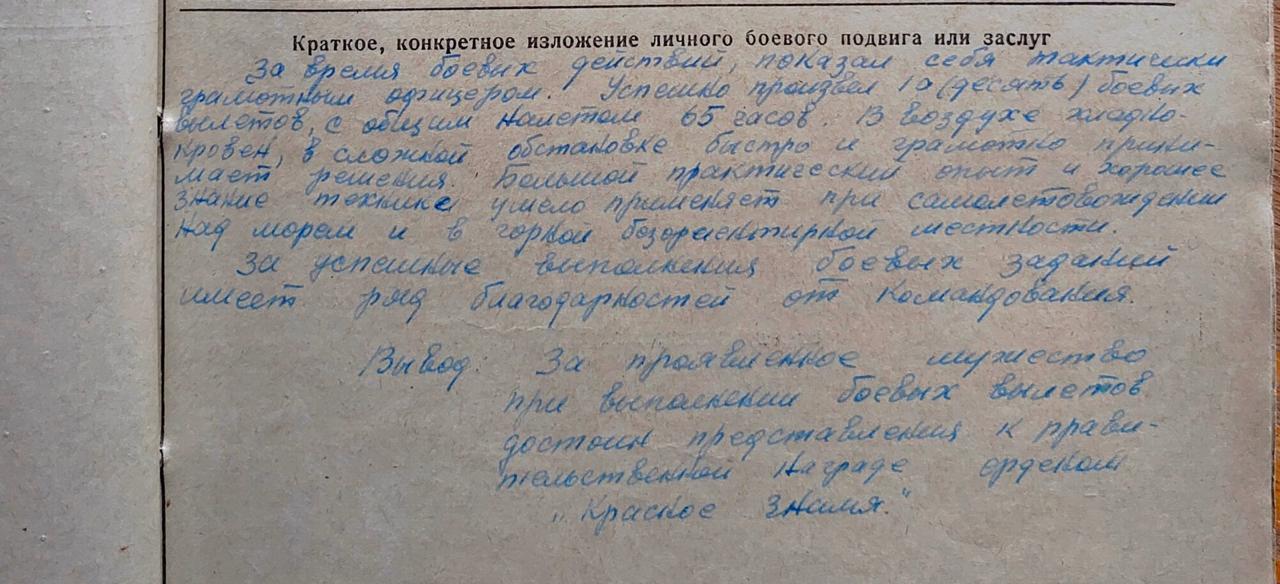 Краткое, конкретное изложение личного боевого подвига или заслуг
За время боевых действий, показал себя тактически
грамотным офицером. Успешно произвел 10 (десять) боевых
вылетов, с общим налетом 65 часов. В воздухе хладно-
кровен, в сложной обстановке быстро и грамотно прини-
мает решения. Большой практический опыт и хорошее
знание техники умело применяет при самолетовождении
над морем и в горной безориентирной местности.
За успешные выполнения боевых заданий
имеет ряд благодарностей от командования.
Вывод: За проявленное мужество
при выполнении боевых вылетов
достоин представления к прави-
тельственной награде орденом
„Красное Знамя."